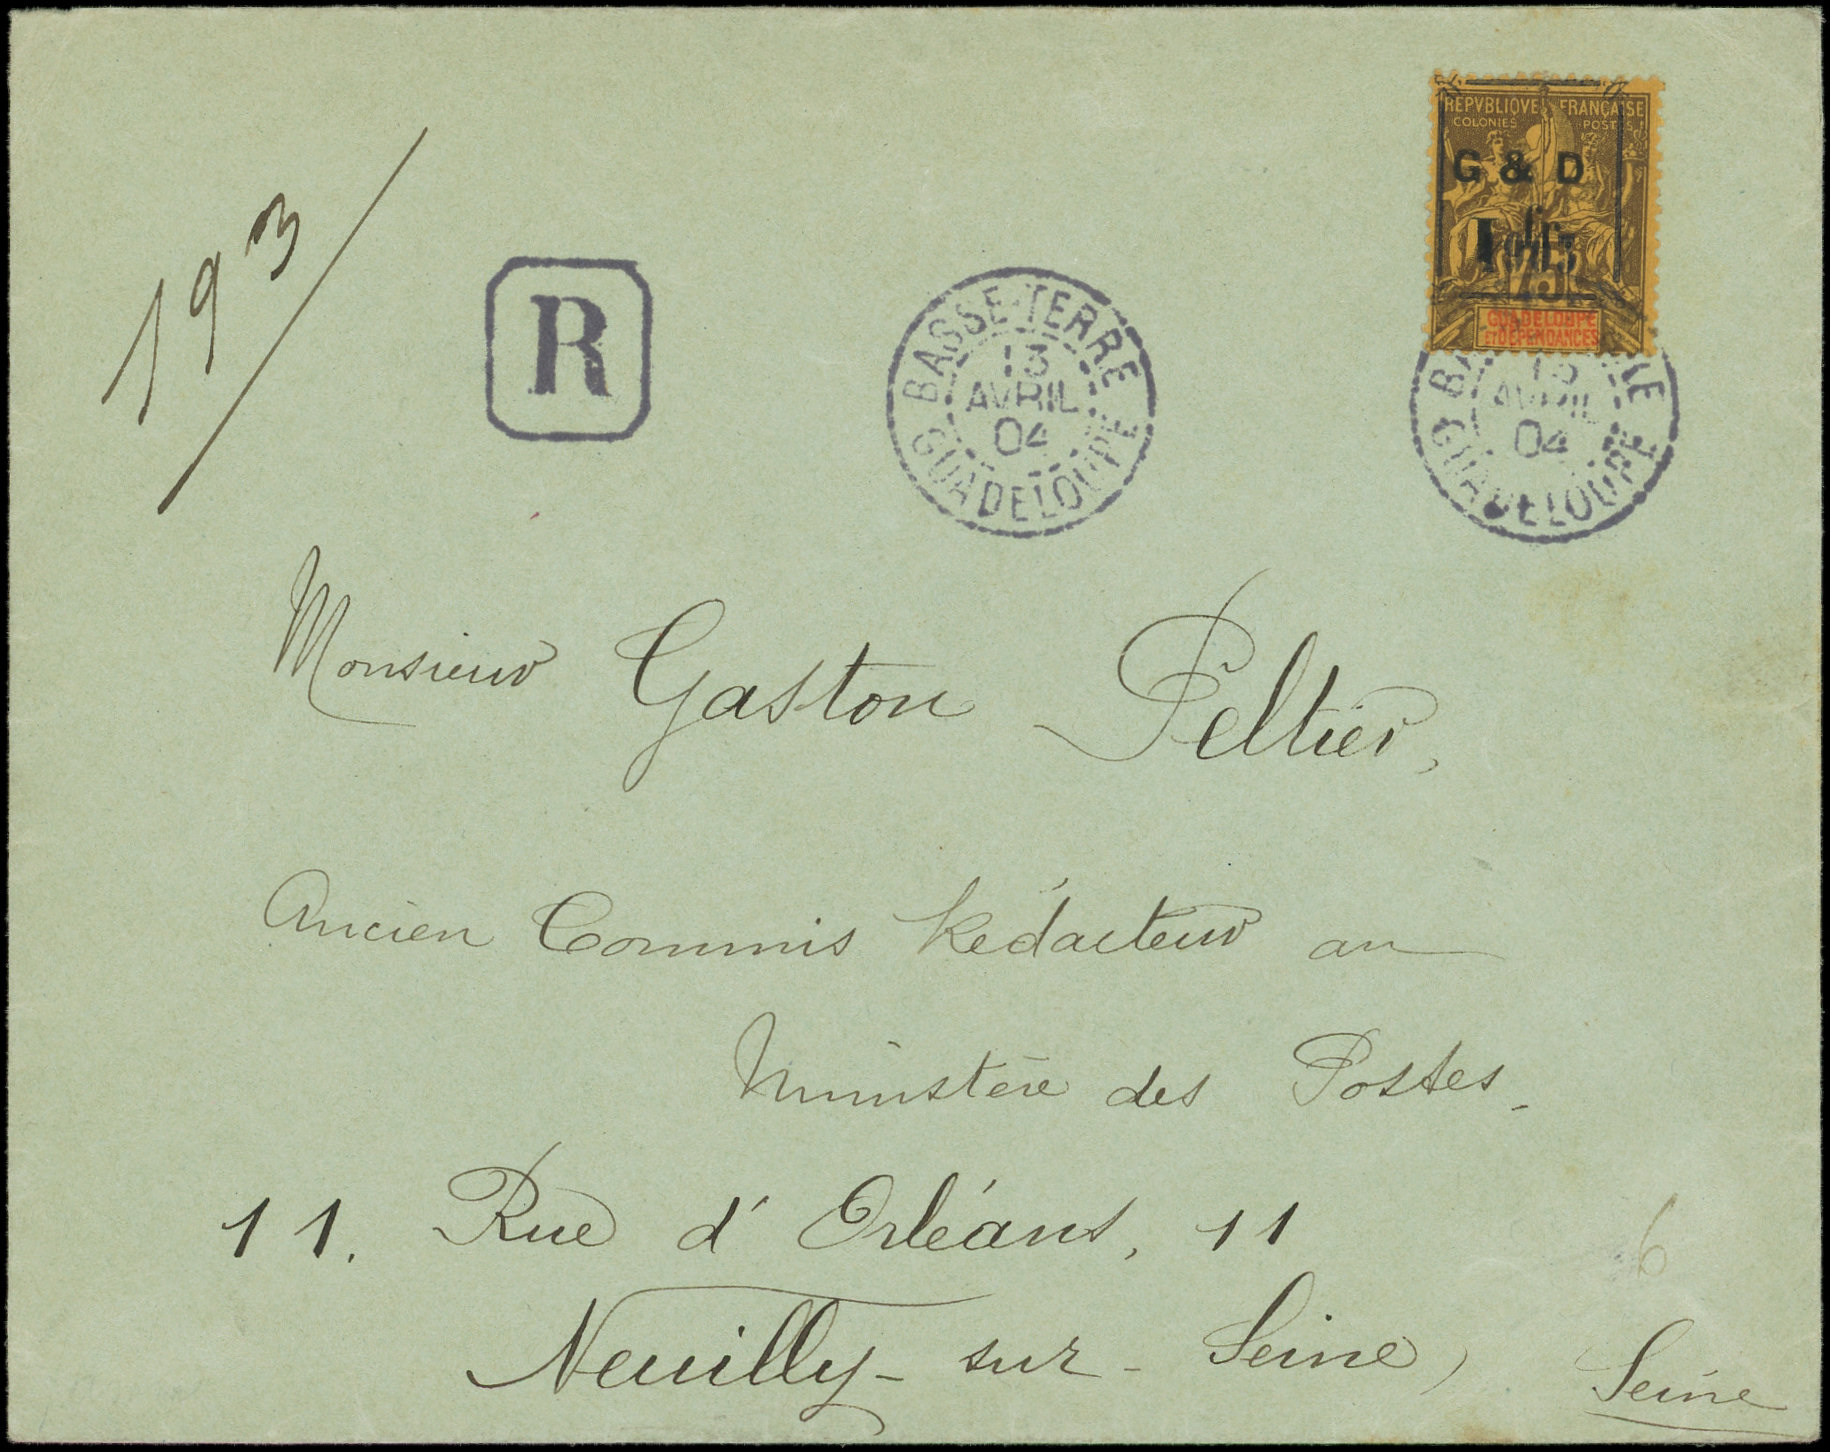 193
R
BASSE-TERRE
13
AVRIL
04
GUADELOUPE
REPVBLIQVE FRANÇAISE
COLONIES POSTES
G & D
GUADELOUPE
ET DEPENDANCES
13
AVRIL
04
GUADELOUPE
Monsieur Gaston Peltier,
Ancien Commis Rédacteur au
Ministère des Postes.
11. Rue d'Orléans, 11
6
Neuilly-sur-Seine,
Seine